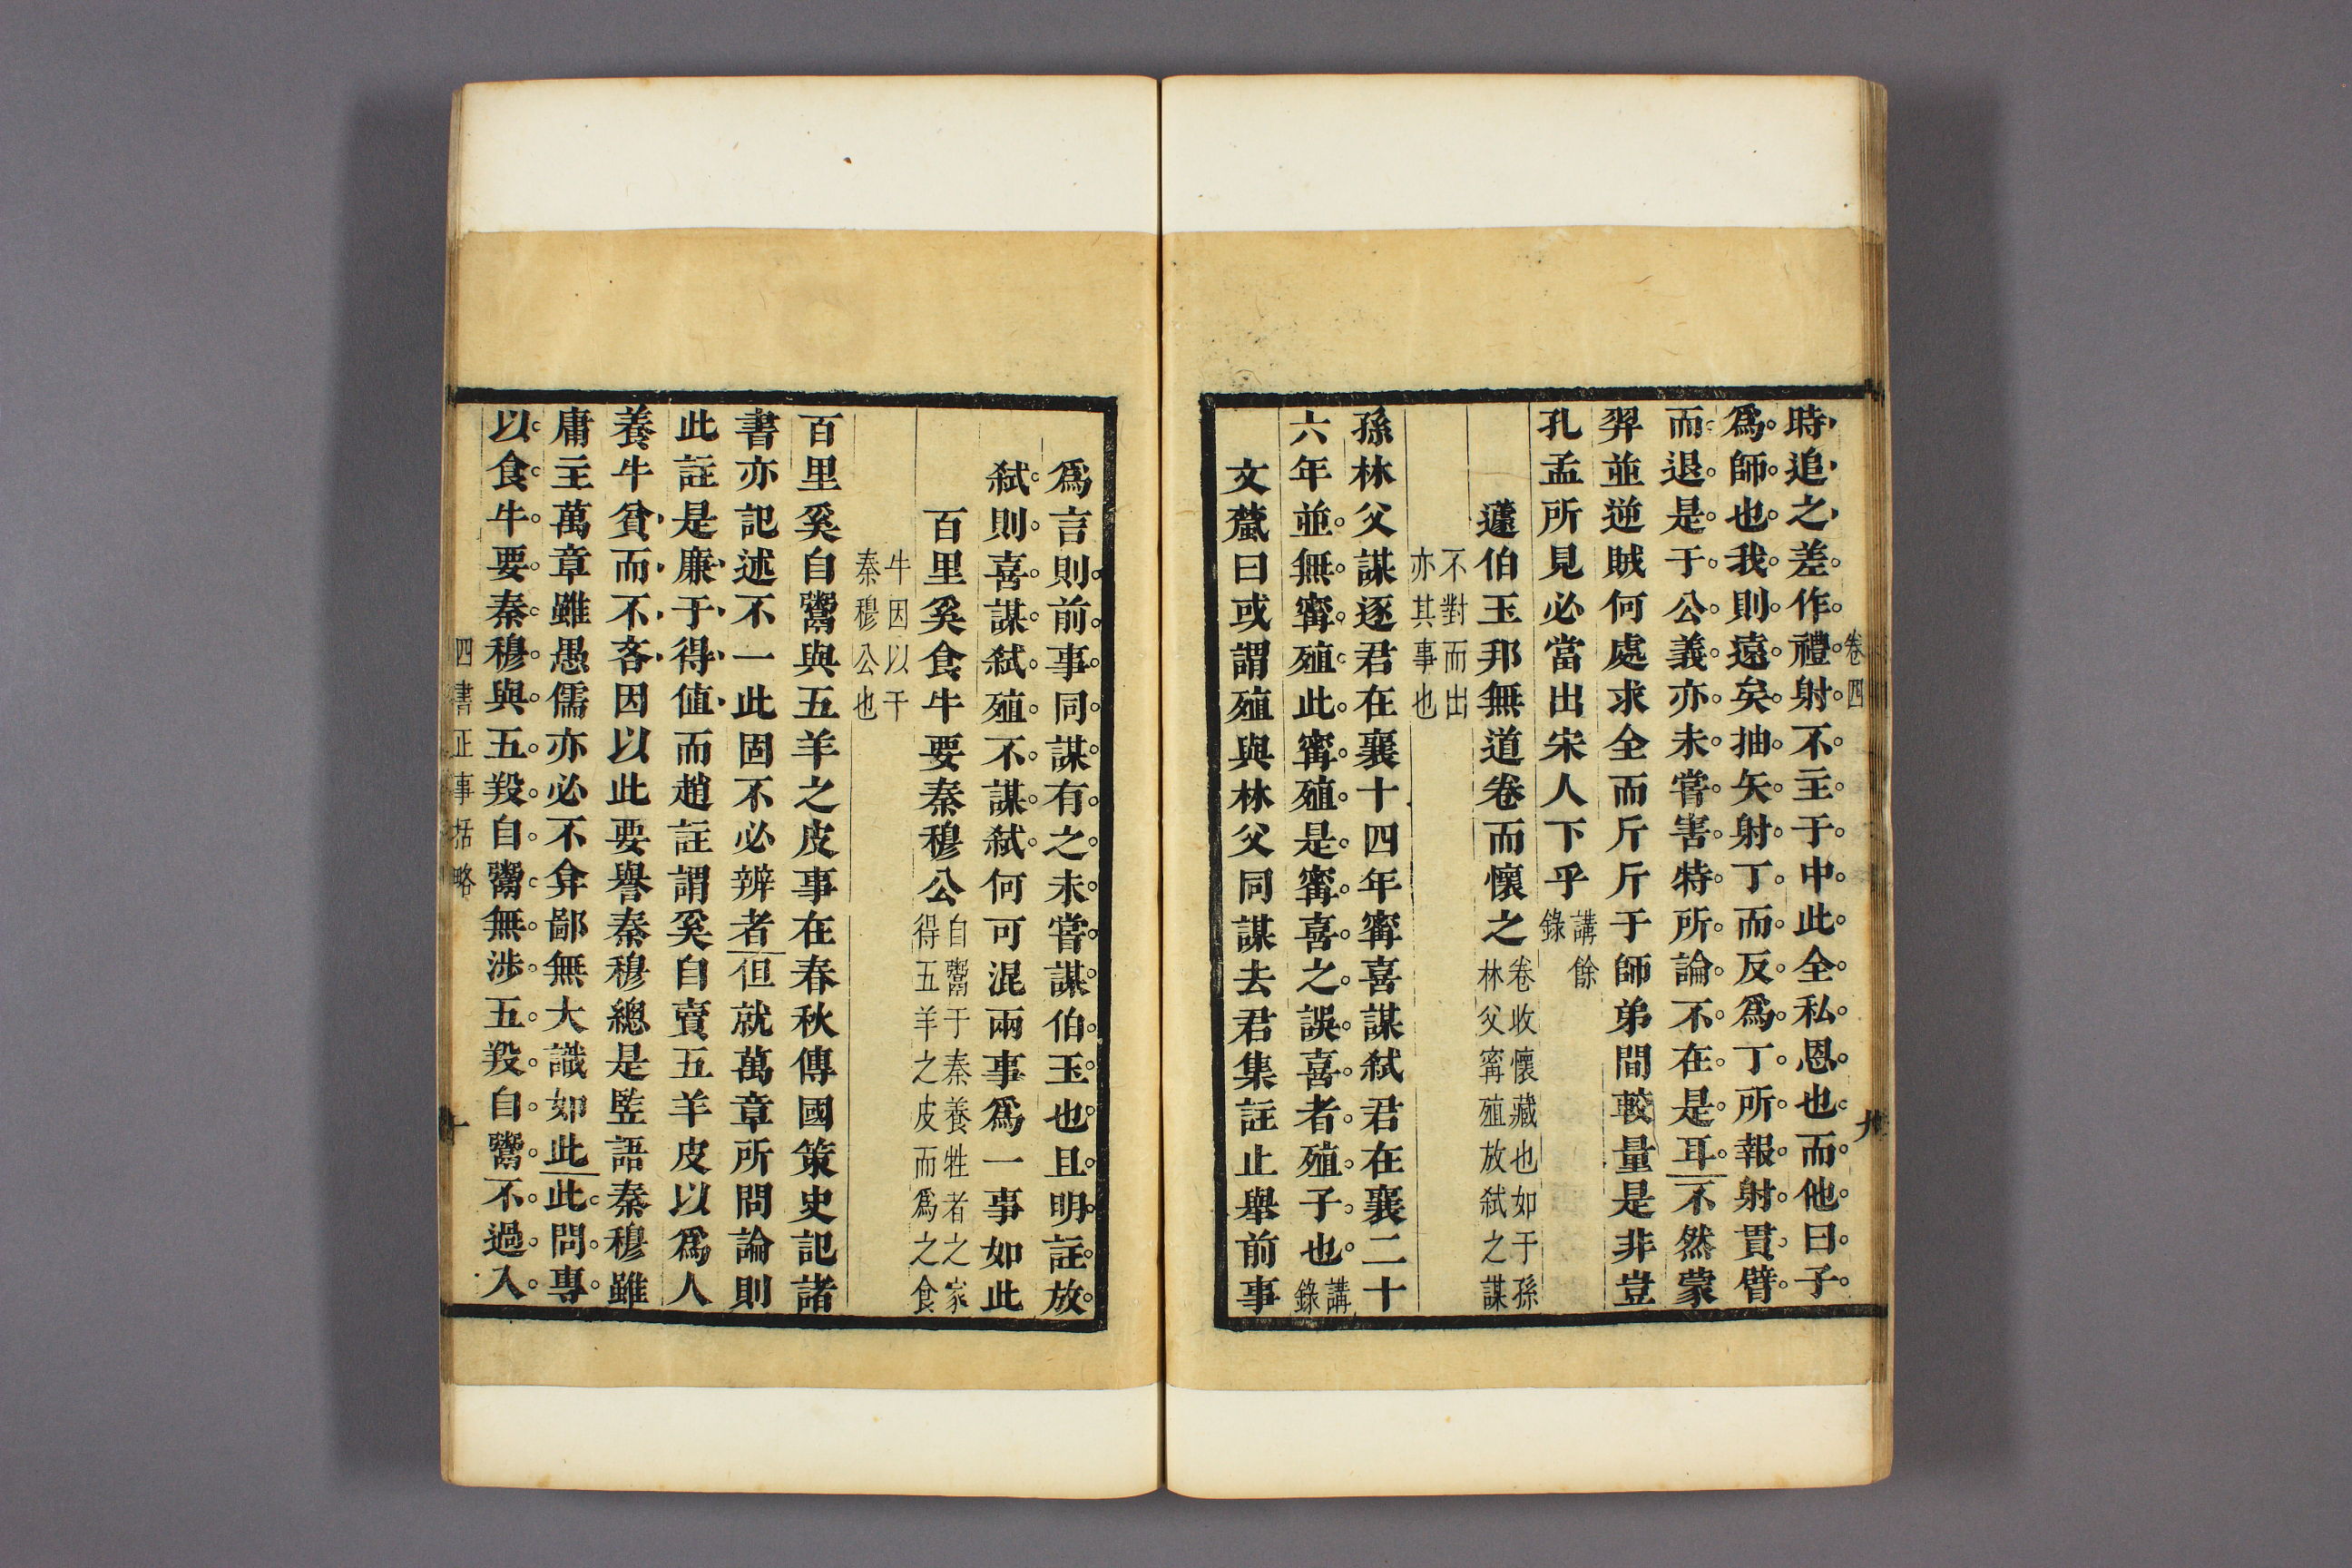 卷四
九
時追之差作禮射不主于中此全私恩也而他曰子
爲師也我則遠矣抽矢射丁而反爲丁所報射貫臂
而退是于公義亦未嘗害特所論不在是耳不然蒙
羿並逆賊何處求全而斤斤于師弟間較量是非豈
孔孟所見必當出宋人下乎講餘
錄
蘧伯玉邦無道卷而懷之卷收懷藏也如于孫
林父寗殖放弑之謀
不對而出
亦其事也
孫林父謀逐君在襄十四年寗喜謀弑君在襄二十
六年並無寗殖此寗殖是寗喜之誤喜者殖子也講
錄
文虨曰或謂殖與林父同謀去君集註止舉前事
爲言則前事同謀有之未嘗謀伯玉也且明註放
弑則喜謀弑殖不謀弑何可混兩事爲一事如此
百里奚食牛要秦穆公自鬻于秦養牲者之家
得五羊之皮而爲之食
牛因以干
秦穆公也
百里奚自鬻與五羊之皮事在春秋傳國策史記諸
書亦記述不一此固不必辨者但就萬章所問論則
此註是廉于得值而趙註謂奚自賣五羊皮以爲人
養牛貧而不吝因以此要譽秦穆總是坒語秦穆雖
庸主萬章雖愚儒亦必不弇鄙無大識如此此問專
以食牛要秦穆與五羖自鬻無涉五羖自鬻不過入
四書正事括略
十